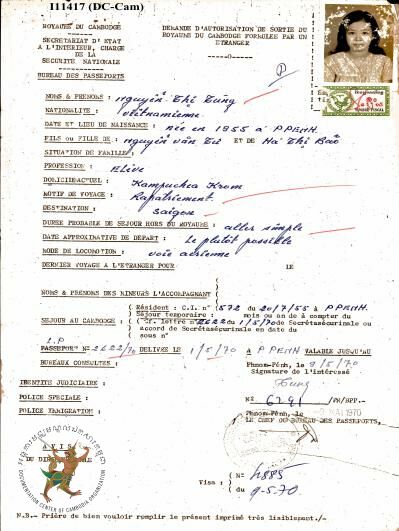 I11417 (DC-Cam)
ROYAUME DU CAMBODGE
SECRETARIAT D'ETAT
A L'INTERIEUR, CHARGE
DE LA
SECURITE NATIONALE
BUREAU DES PASSEPORTS
DEMANDE D'AUTORISATION DE SORTIE DU
ROYAUME DU CAMBODGE FORMULEE PAR UN
ETRANGER
NOMS & PRENOMS : Nguyễn Thị Tung
NATIONALITE : Vietnamienne
DATE ET LIEU DE NAISSANCE : née en 1955 à P PENH.
FILS ou FILLE de : Nguyễn Văn Tư ET DE Hà Thị Bảo
SITUATION DE FAMILLE :
PROFESSION : Elève
DOMICILE ACTUEL : Kampuchea Krom
MOTIF DE VOYAGE : Rapatriement.
DESTINATION : Saigon
DUREE PROBABLE DE SEJOUR HORS DU ROYAUME : aller simple
DATE APPROXIMATIVE DE DEPART : Le plutôt possible
MODE DE LOCOMOTION : voie aérienne
DERNIER VOYAGE A L'ETRANGER POUR LE
NOMS & PRENOMS DES MINEURS L'ACCOMPAGNANT
SEJOUR AU CAMBODGE :
Résident : C.I. n° 572 du 20/7/55 à P PENH.
Séjour temporaire : mois ou an de à compter du
Cf. lettre n° 2622 1/5/70 de Secrétasécurinale ou
accord de Secrétasécurinale en date du
sous n°
L.P
PASSEPORT N° 2622/70 DELIVRE LE 1/5/70 A P PENH VALABLE JUSQU'AU
BUREAUX CONSULTES :
Phnom-Penh, le 9/5/70
Signature de l'intéressé
Tung
IDENTITE JUDICIAIRE :
POLICE SPECIALE :
POLICE IMMIGRATION :
N° 6291 /PN/BPP.-
Phnom-Penh, le MAI 1970
LE CHEF DU BUREAU DES PASSEPORTS,
AVIS
DU
DOCUMENTATION CENTER OF CAMBODIA ORGANIZATION
Visa :
N° 4885
du 9.5.70
N.B.- Prière de bien vouloir remplir le présent imprimé très lisiblement./-